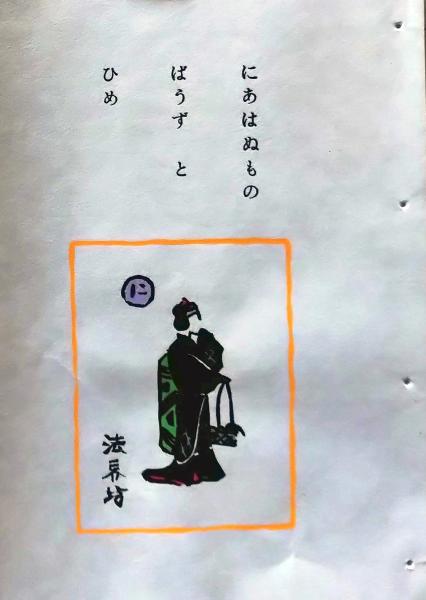 にあはぬもの
ばうず と
ひめ
に
法界坊